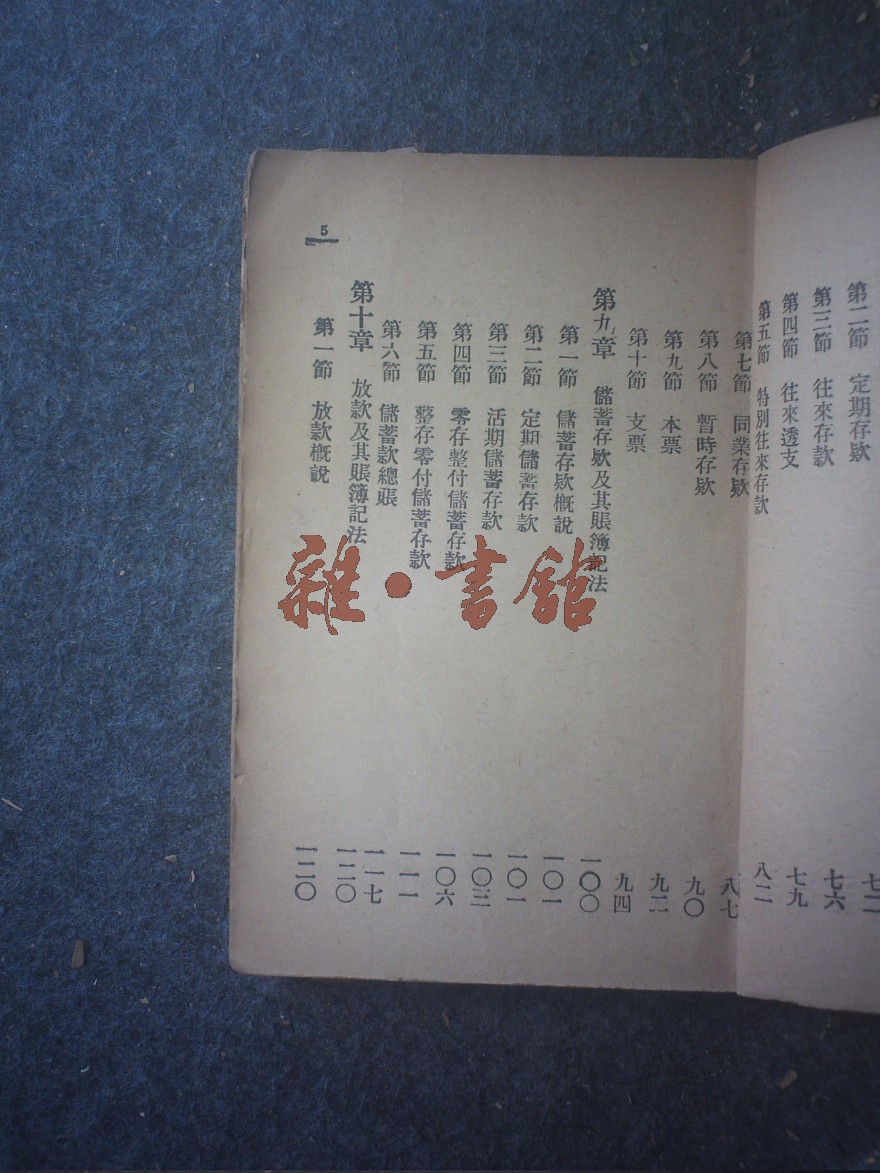 第二節 定期存款 七二
第三節 往來存款 七六
第四節 往來透支 七九
第五節 特別往來存款 八二
第七節 同業存款 八七
第八節 暫時存款 九〇
第九節 本票 九二
第十節 支票 九四
第九章 儲蓄存款及其賬簿記法 一〇〇
第一節 儲蓄存款概說 一〇一
第二節 定期儲蓄存款 一〇一
第三節 活期儲蓄存款 一〇三
第四節 零存整付儲蓄存款 一〇六
第五節 整存零付儲蓄存款 一一一
第六節 儲蓄款總賬 一一七
第十章 放款及其賬簿記法 一二〇
第一節 放款概說 一二〇
5
雜·書館